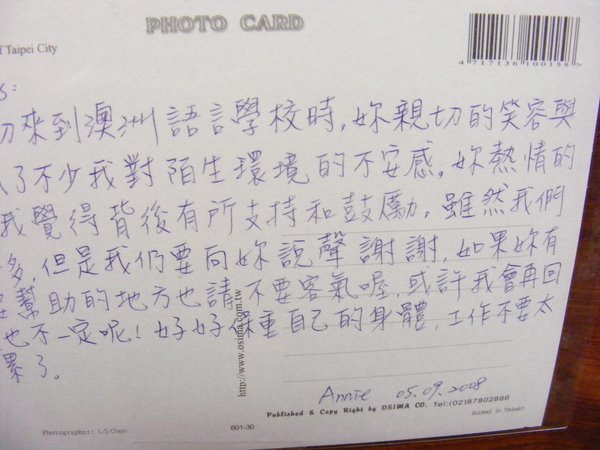 PHOTO CARD
f Taipei City
4 717136 100138
s:
來到澳洲語言學校時,妳親切的笑容與
了不少我對陌生環境的不安感。妳熱情的
我覺得背後有所支持和鼓勵。雖然我們
多,但是我們仍要向妳說聲謝謝,如果妳有
幫助的地方也請不要客氣喔,或許我會再回
也不一定呢!好好保重自己的身體,工作不要太
累了。
http://www.osima.com.tw
Annie 05.09.2008
Published & Copy Right by OSIMA CO. Tel:(02)87802886
Photographer: L-S Chen
601-30
Printed in Taiwan